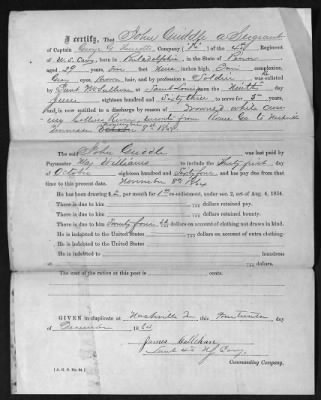 I certify, That John Cuddle a Sergeant
of Captain George G. Company ( ) of the 4th Regiment
of U.S. Cavy, born in Philadelphia, in the State of Penn
aged 29 years, five feet inches high, complexion,
Gray eyes, Brown hair, and by profession a Soldier was enlisted
by Lieut at Saint Louis on the Ninth day
eighteen hundred and Sixty three to serve for years,
and is now entitled to discharge by reason of Drowned while
River Co to Nashville
Tennessee November 8th 1864
The said John Cuddle was last paid by
Paymaster Maj Williams to include the Thirty first day
of October eighteen hundred and Sixty four, and has pay due from that
time to this present date. November 8th 1864
He has been drawing $2 per month for 1st re-enlistment, under sec. 2, act of Aug. 4, 1854.
There is due to him dollars retained pay.
There is due to him dollars retained bounty.
There is due to him Twenty four dollars on account of clothing not drawn in kind.
He is indebted to the United States dollars on account of extra clothing.
He is indebted to the United States
He is indebted to laundress
at dollars.
The cost of the ration at this post is cents.
GIVEN in duplicate at Nashville Tn, this Fourteenth day
of December 1864
James Callehan
Lieut 4th U.S. Cavy.
Commanding Company.